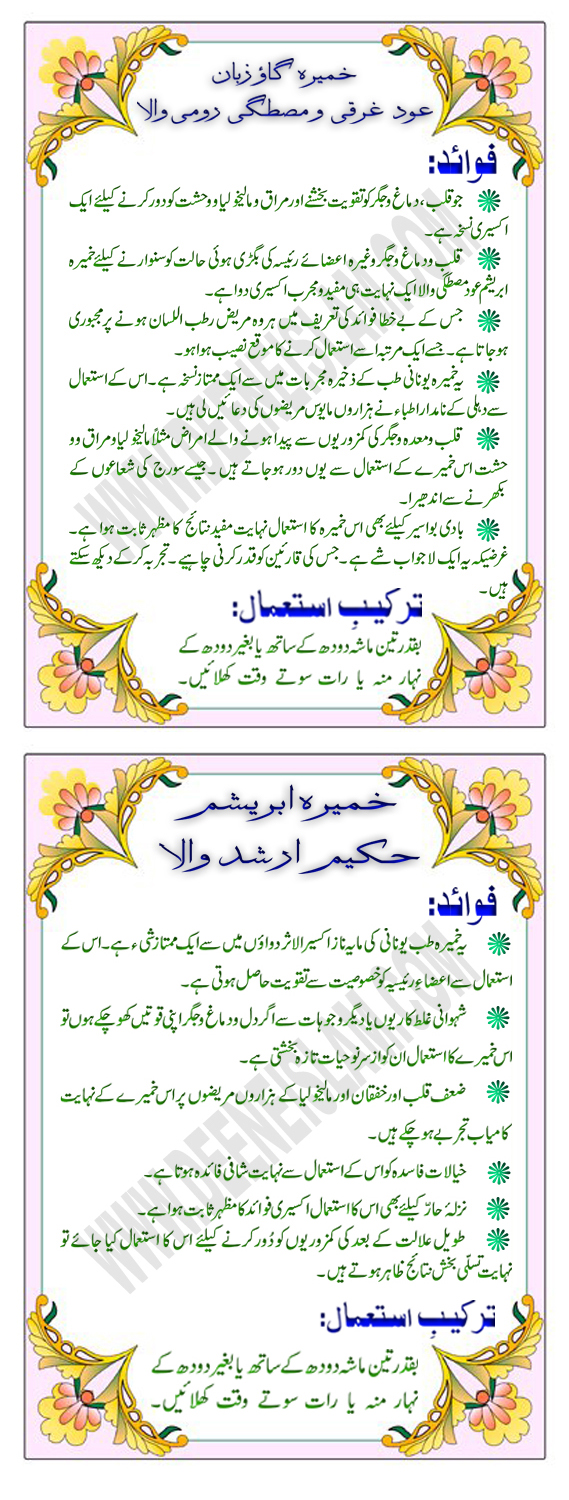 خمیرہ گاؤزبان
عود غرقی و مصطگی رومی والا
فوائد:
جو قلب، دماغ و جگر کو تقویت بخشنے اور مراق و مالیخولیا و وحشت کو دور کرنے کیلئے ایک
اکسیری نسخہ ہے۔
قلب و دماغ و جگر وغیرہ اعضائے رئیسہ کی بگڑی ہوئی حالت کو سنوارنے کیلئے خمیرہ
ابریشم عود مصطگی والا ایک نہایت ہی مفید و مجرب اکسیری دوا ہے۔
جس کے بے خطا فوائد کی تعریف میں ہر وہ مریض رطب اللسان ہونے پر مجبوری
ہو جاتا ہے۔ جسے ایک مرتبہ اسے استعمال کرنے کا موقع نصیب ہوا ہو۔
یہ خمیرہ یونانی طب کے ذخیرہ مجربات میں سے ایک ممتاز نسخہ ہے۔ اس کے استعمال
سے دہلی کے نامدار اطباء نے ہزاروں مایوس مریضوں کی دعائیں لی ہیں۔
قلب و معدہ و جگر کی کمزوریوں سے پیدا ہونے والے امراض مثلاً مالیخولیا و مراق و و
حشت اس خمیرے کے استعمال سے یوں دور ہو جاتے ہیں۔ جیسے سورج کی شعاعوں کے
بکھرنے سے اندھیرا۔
بادی بواسیر کیلئے بھی اس خمیرہ کا استعمال نہایت مفید نتائج کا مظہر ثابت ہوا ہے۔
غرضیکہ یہ ایک لاجواب شے ہے۔ جس کی قارئین کو قدر کرنی چاہیے۔ تجربہ کر کے دیکھ سکتے
ہیں۔
ترکیبِ استعمال:
بقدر تین ماشہ دودھ کے ساتھ یا بغیر دودھ کے
نہار منہ یا رات سوتے وقت کھلائیں۔
WWW.DEENEISLAM.COM
خمیرہ ابریشم
حکیم ارشد والا
فوائد:
یہ خمیرہ طب یونانی کی مایہ ناز اکسیر الاثر دواؤں میں سے ایک ممتاز شیٔ ہے۔ اس کے
استعمال سے اعضاءِ رئیسیہ کو خصوصیت سے تقویت حاصل ہوتی ہے۔
شہوانی غلط کاریوں یا دیگر وجوہات سے اگر دل و دماغ و جگر اپنی قوتیں کھو چکے ہوں تو
اس خمیرے کا استعمال ان کو از سرِ نو حیات تازہ بخشتی ہے۔
ضعف قلب اور خفقان اور مالیخولیا کے ہزاروں مریضوں پر اس خمیرے کے نہایت
کامیاب تجربے ہو چکے ہیں۔
خیالات فاسدہ کو اس کے استعمال سے نہایت شافی فائدہ ہوتا ہے۔
نزلۂ حارّ کیلئے بھی اس کا استعمال اکسیری فوائد کا مظہر ثابت ہوا ہے۔
طویل علالت کے بعد کی کمزوریوں کو دُور کرنے کیلئے اس کا استعمال کیا جائے تو
نہایت تسلّی بخش نتائج ظاہر ہوتے ہیں۔
ترکیبِ استعمال:
بقدر تین ماشہ دودھ کے ساتھ یا بغیر دودھ کے
نہار منہ یا رات سوتے وقت کھلائیں۔
WWW.DEENEISLAM.COM